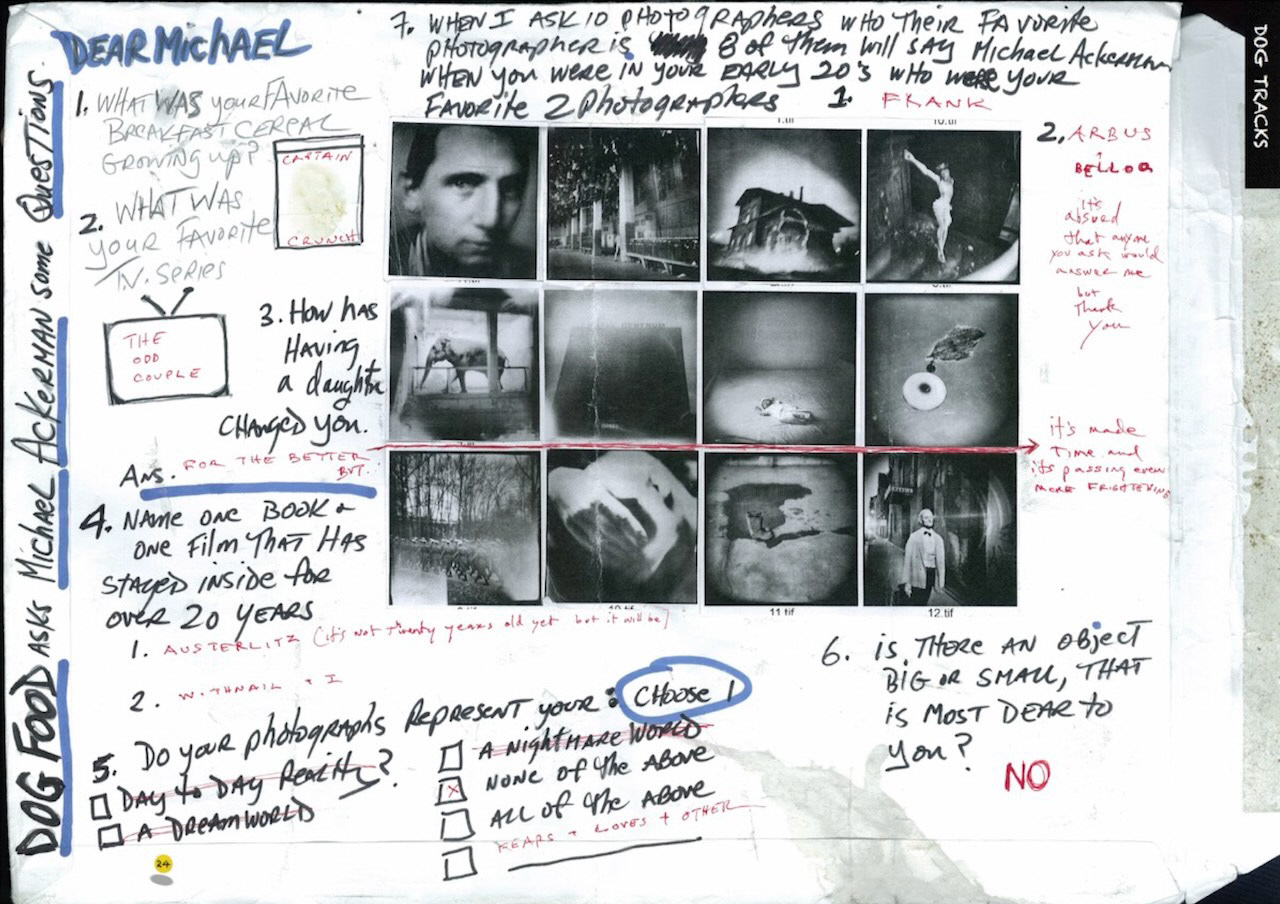 DEAR MichAEL
DOG FOOD ASKS Michael Ackerman some Questions.
1. WHAT WAS your FAVORITE
BREAKFAST CEREAL
GROWING up?
CAPTAIN
CRUNCH
2. WHAT WAS
YOUR FAVORITE
T.V. SERIES
THE
ODD
COUPLE
3. HOW HAS
HAVING
a daughter
CHANGED YOU.
Ans. FOR THE BETTER
BUT.
it's made
Time and
its passing even
MORE FRIGHTENING
4. NAME ONE BOOK +
ONE FILM THAT HAS
STAYED INSIDE for
OVER 20 YEARS
1. AUSTERLITZ (it's not Twenty years old yet but it will be)
2. WITHNAIL + I
5. Do your photographs Represent your : CHOOSE 1
DAY to DAY Reality?
A DREAMWORLD
A NIGHTMARE WORLD
X NONE OF the ABOVE
ALL OF the ABOVE
FEARS + LOVES + OTHER
6. is THERE AN object
BIG OR SMALL, THAT
is MOST DEAR TO
you?
NO
7. WHEN I ASK 10 PHOTOGRAPHERS WHO THEIR FAVORITE
photographer is 8 of them will say Michael Ackerman
WHEN you WERE IN YOUR EARLY 20's WHO were your
FAVORITE 2 photographers 1. FRANK
2. ARBUS
+
BELLOQ
it's
absurd
that anyone
you ask would
answer me
but
Thank
you
10.tif
11.tif
12.tif
24
DOG TRACKS